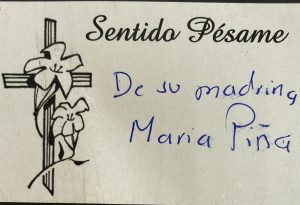 Sentido Pésame
De su madrina
Maria Piña